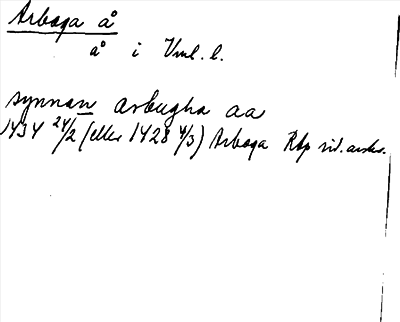 Arboga å
å i Vml. l.
synnan arbugha aa
1434 24/2 (eller 1428 4/3) Arboga Rdp